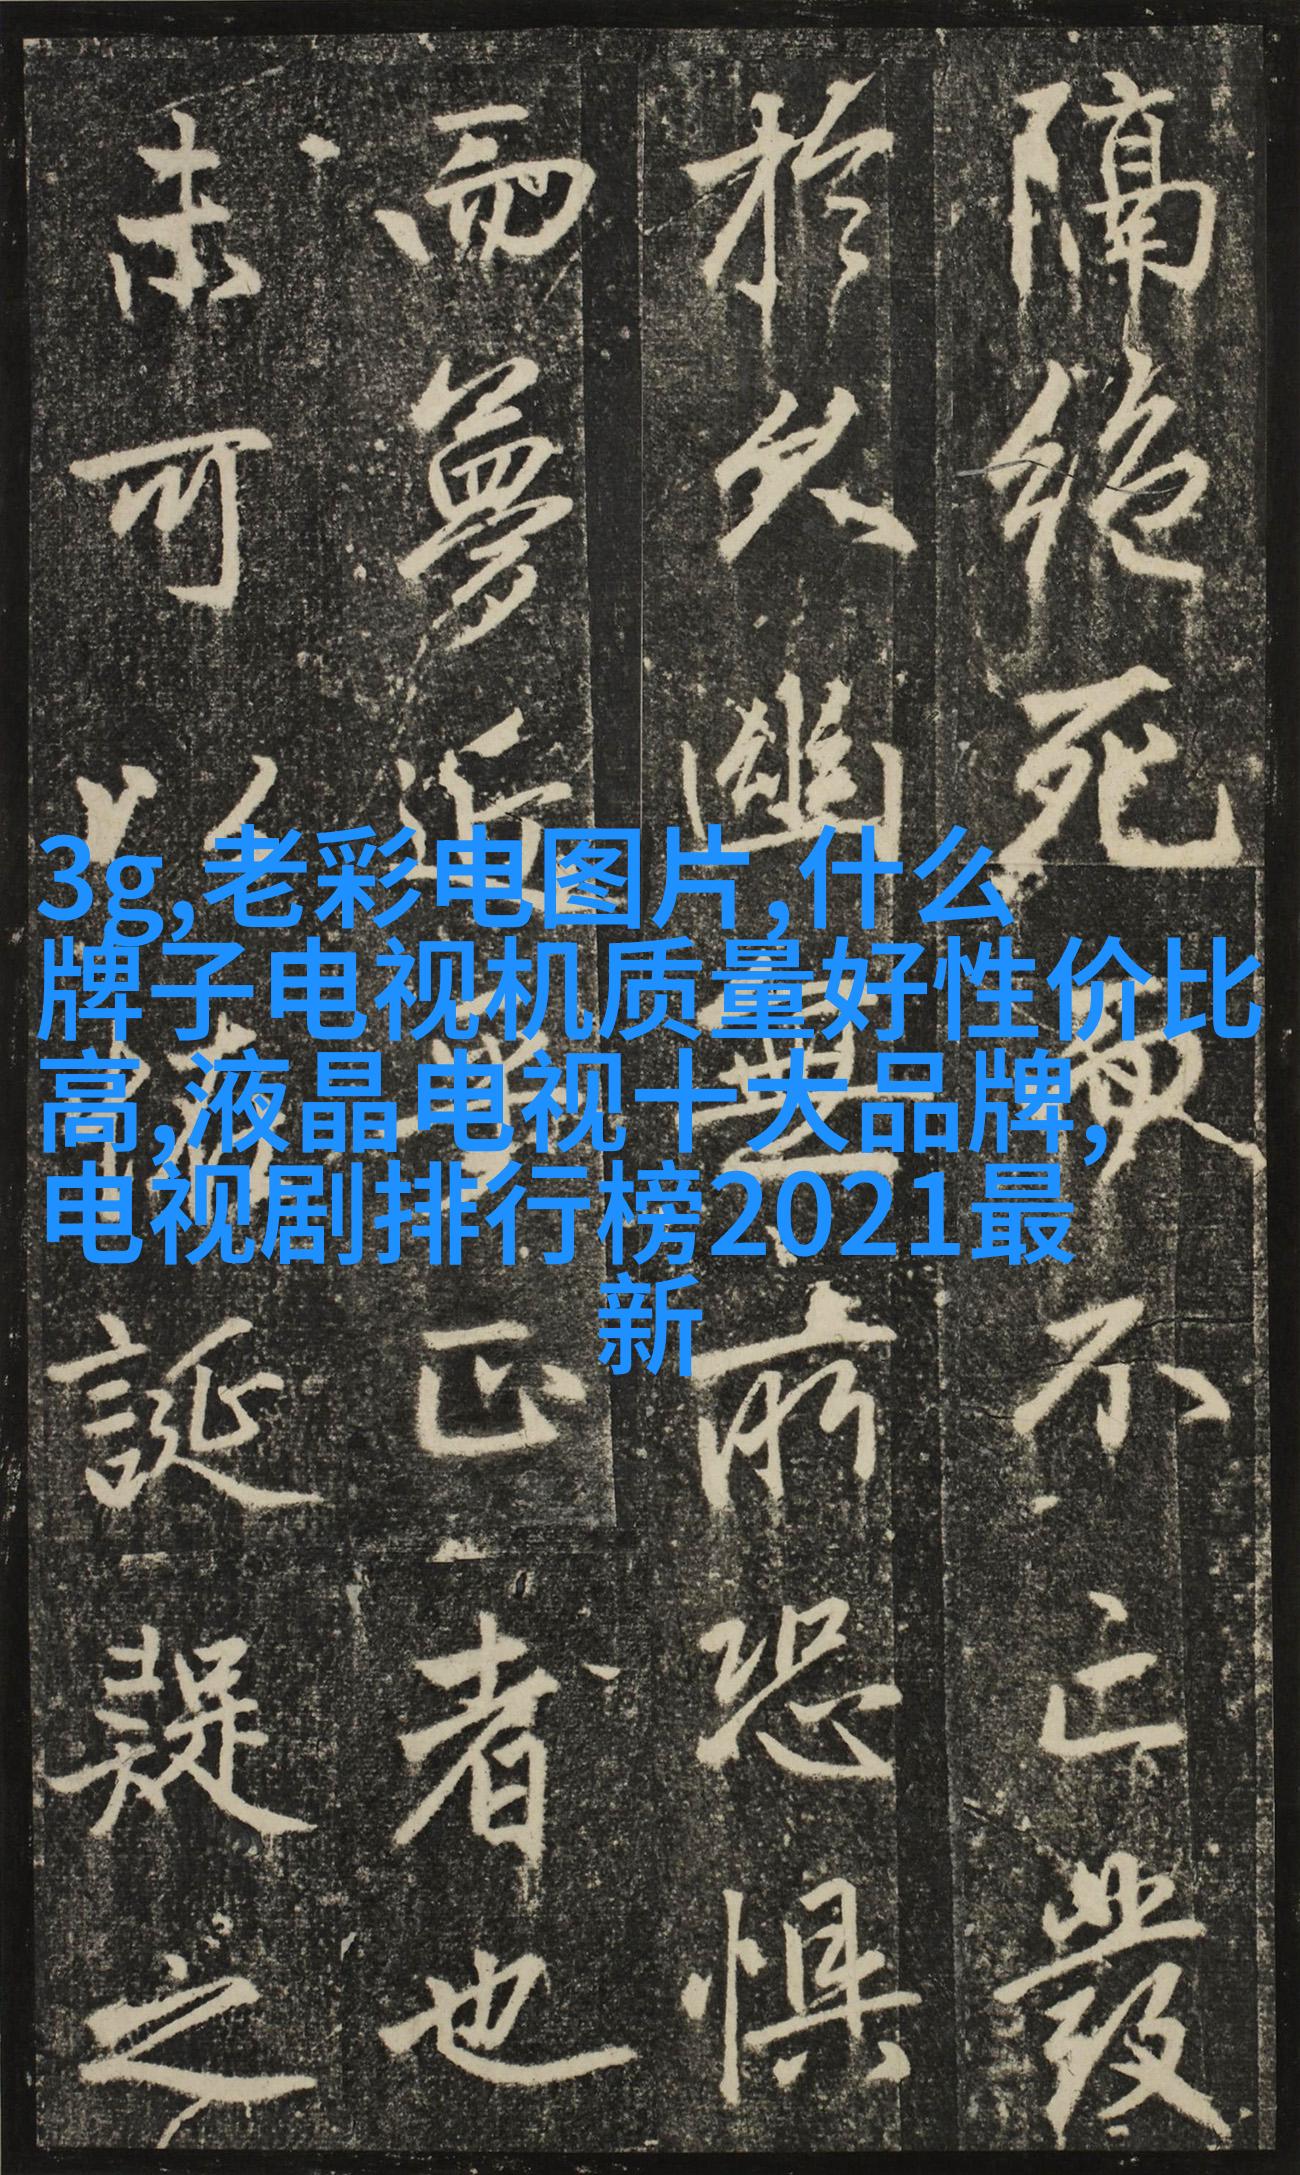 3g,老彩电图片,什么
牌子电视机质量好性价比
高,液晶电视十大品牌,
电视剧排行榜2021最
新
隔絕死不亡發
於久幽無所恐惧
而夢近正者也
未可以誕疑之